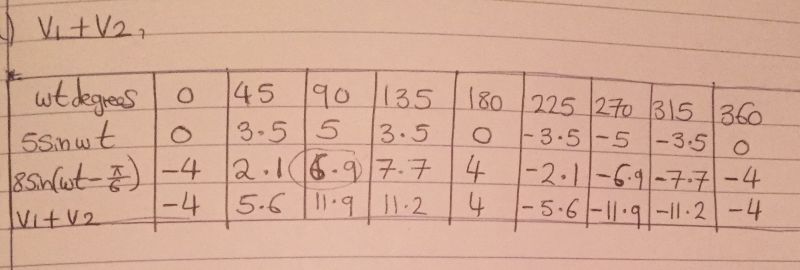 ) V1 + V2,
wt degrees 0 45 90 135 180 225 270 315 360
5sinwt 0 3.5 5 3.5 0 -3.5 -5 -3.5 0
8sin(wt-π/6) -4 2.1 6.9 7.7 4 -2.1 -6.9 -7.7 -4
V1+V2 -4 5.6 11.9 11.2 4 -5.6 -11.9 -11.2 -4